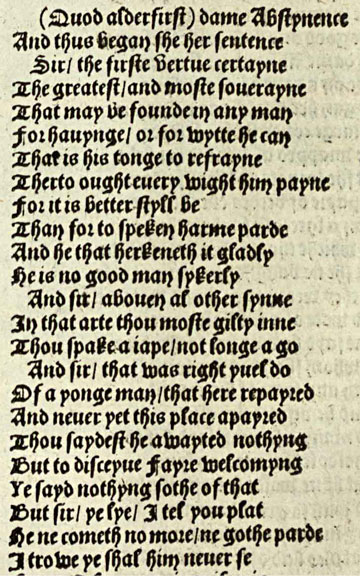 (Quod alderfirst) dame Abstynence
And thus began she her sentence
Sir/ the firste vertue certayne
The greatest/and moste souerayne
That may be founde in any man
For hauynge/ or for wytte he can
That is his tonge to refrayne
Therto ought euery wight him payne
For it is better styll be
Than for to speken harme parde
And he that herkeneth it gladly
He is no good man sykerly
And sir/ abouen al other synne
In that arte thou moste gilty inne
Thou spake a iape/not longe a go
And sir/ that was right yuel do
Of a yonge man/that here repayred
And neuer yet this place apayred
Thou saydest he awayted nothyng
But to disceyue Fayre welcomyng
Ye sayd nothyng sothe of that
But sir/ ye lye/ I tel you plat
He ne cometh no more/ne gothe parde
I trowe ye shal him neuer se